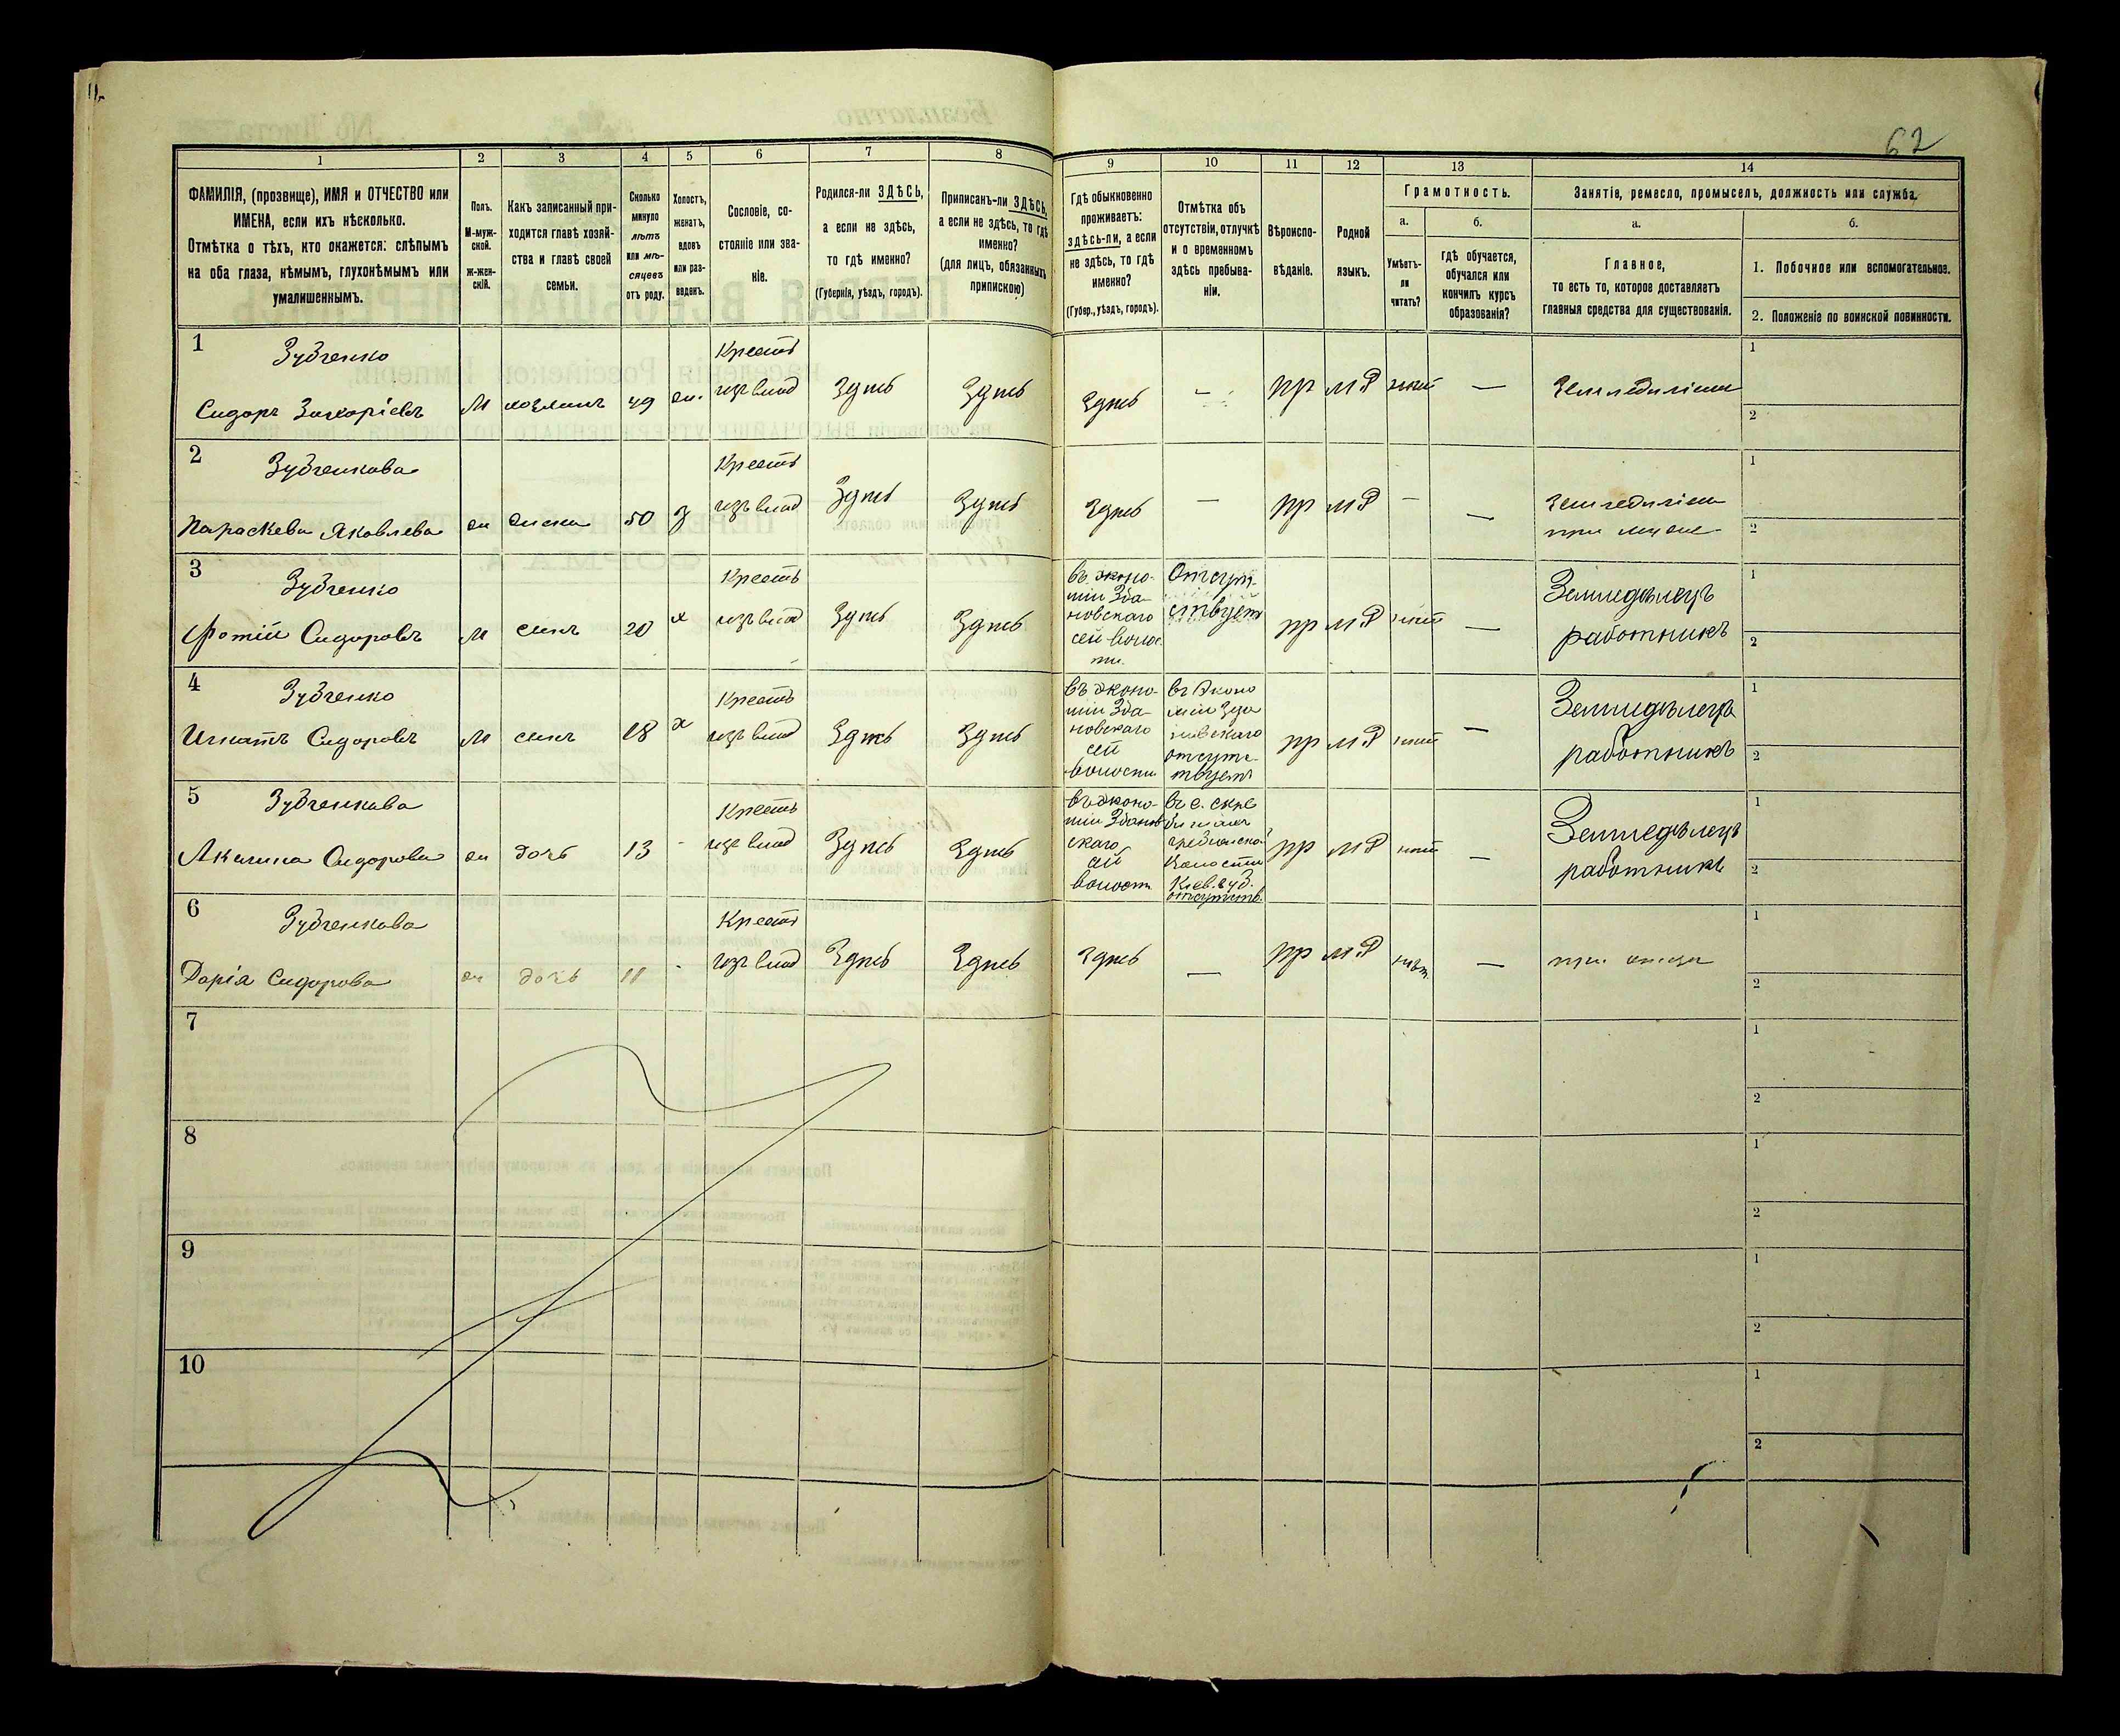 62
1 2 3 4 5 6 7 8 9 10 11 12 13 14
ФАМИЛІЯ, (прозвище), ИМЯ и ОТЧЕСТВО или
ИМЕНА, если ихъ нѣсколько.
Отмѣтка о тѣхъ, кто окажется: слѣпымъ
на оба глаза, нѣмымъ, глухонѣмымъ или
умалишеннымъ.
Полъ.
М-муж-
ской.
ж-жен-
скій.
Какъ записанный при-
ходится главѣ хозяй-
ства и главѣ своей
семьи.
Сколько
минуло
лѣтъ
или мѣ-
сяцевъ
отъ роду.
Холостъ,
женатъ,
вдовъ
или раз-
веденъ.
Сословіе, со-
стояніе или зва-
ніе.
Родился-ли ЗДѢСЬ,
а если не здѣсь,
то гдѣ именно?
(Губернія, уѣздъ, городъ).
Приписанъ-ли ЗДѢСЬ,
а если не здѣсь, то гдѣ
именно?
(для лицъ, обязанныхъ
припискою)
Гдѣ обыкновенно
проживаетъ:
здѣсь-ли, а если
не здѣсь, то гдѣ
именно?
(Губер., уѣздъ, городъ).
Отмѣтка объ
отсутствіи, отлучкѣ
и о временномъ
здѣсь пребыва-
ніи.
Вѣроиспо-
вѣданіе.
Родной
языкъ.
Грамотность.
а.
Умѣетъ-
ли
читать?
б.
гдѣ обучается,
обучался или
кончилъ курсъ
образованія?
Занятіе, ремесло, промыселъ, должность или служба.
а.
Главное,
то есть то, которое доставляетъ
главныя средства для существованія.
б.
1. Побочное или вспомогательное.
2. Положеніе по воинской повинности.
1
Зубченко
Сидоръ Захаріевъ
М
хозяинъ
49
жн.
Крест
изъ влад
Здѣсь
Здѣсь
Здѣсь
—
пр
МР
нѣт
—
Земледѣліем
1
2
2
Зубченкова
Параскева Яковлева
ж
жена
50
з
Крест
изъ влад
Здѣсь
Здѣсь
Здѣсь
—
пр
МР
—
—
Земледѣліем
при муже
1
2
3
Зубченко
Фотій Сидоровъ
М
сынъ
20
х
Крестъ
изъ влад
Здѣсь
Здѣсь
въ эконо-
міи Зда-
новскаго
сей волос
ти.
Отсут-
ствует
пр
МР
нѣт
—
Земледѣлецъ
работникъ
1
2
4
Зубченко
Игнатъ Сидоровъ
М
сынъ
18
х
Крестъ
изъ влад
Здѣсь
Здѣсь
въ эконо-
міи Зда-
новскаго
сей
волости
въ эконо
міи Зда
новскаго
отсутс-
твует
пр
МР
нѣт
—
Земледѣлецъ
работникъ
1
2
5
Зубченкова
Акилина Сидорова
ж
дочь
13
-
Крестъ
изъ влад
Здѣсь
Здѣсь
въ эконо-
міи Зданов
скаго
сей
волост
въ с.
волости
Кіев. губ.
отсутств.
пр
МР
нѣт
—
Земледѣлецъ
работникъ
1
2
6
Зубченкова
Дарія Сидорова
ж
дочь
11
-
Крест
изъ влад
Здѣсь
Здѣсь
Здѣсь
—
пр
МР
нѣт
—
при отцѣ
1
2
7
1
2
8
1
2
9
1
2
10
1
2